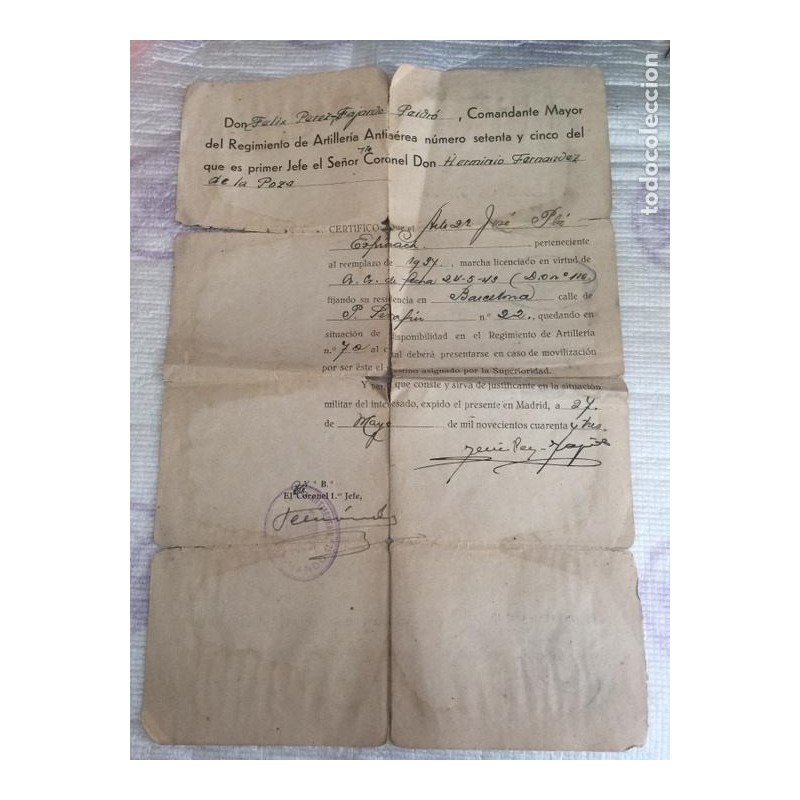 Don Felix Perez-Fajardo Pardró, Comandante Mayor
del Regimiento de Artillería Antiaérea número setenta y cinco del
que es primer Jefe el Señor Tte Coronel Don Herminio Fernandez
de la Poza
CERTIFICO: Que el Artº 2º José Plá
Espinach, perteneciente
al reemplazo de 1937, marcha licenciado en virtud de
O. C. de fecha 24-5-43 (D.O nº 116)
fijando su residencia en Barcelona calle de
P. Serafín n.º 22, quedando en
situación de disponibilidad en el Regimiento de Artillería
n.º 72 al cual deberá presentarse en caso de movilización
por ser éste el asignado por la Superioridad.
Y para que conste y sirva de justificante en la situación
militar del interesado, expido el presente en Madrid, a 27
de Mayo de mil novecientos cuarenta y tres.
V.º B.º
El Coronel 1.er Jefe,
Fernández
todocoleccion